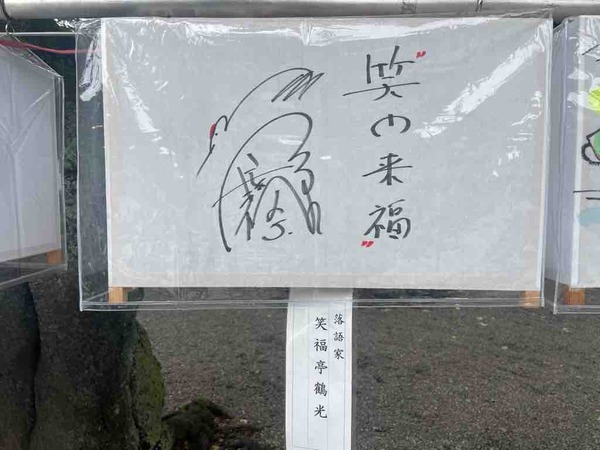 "笑門来福"
落語家
笑福亭鶴光